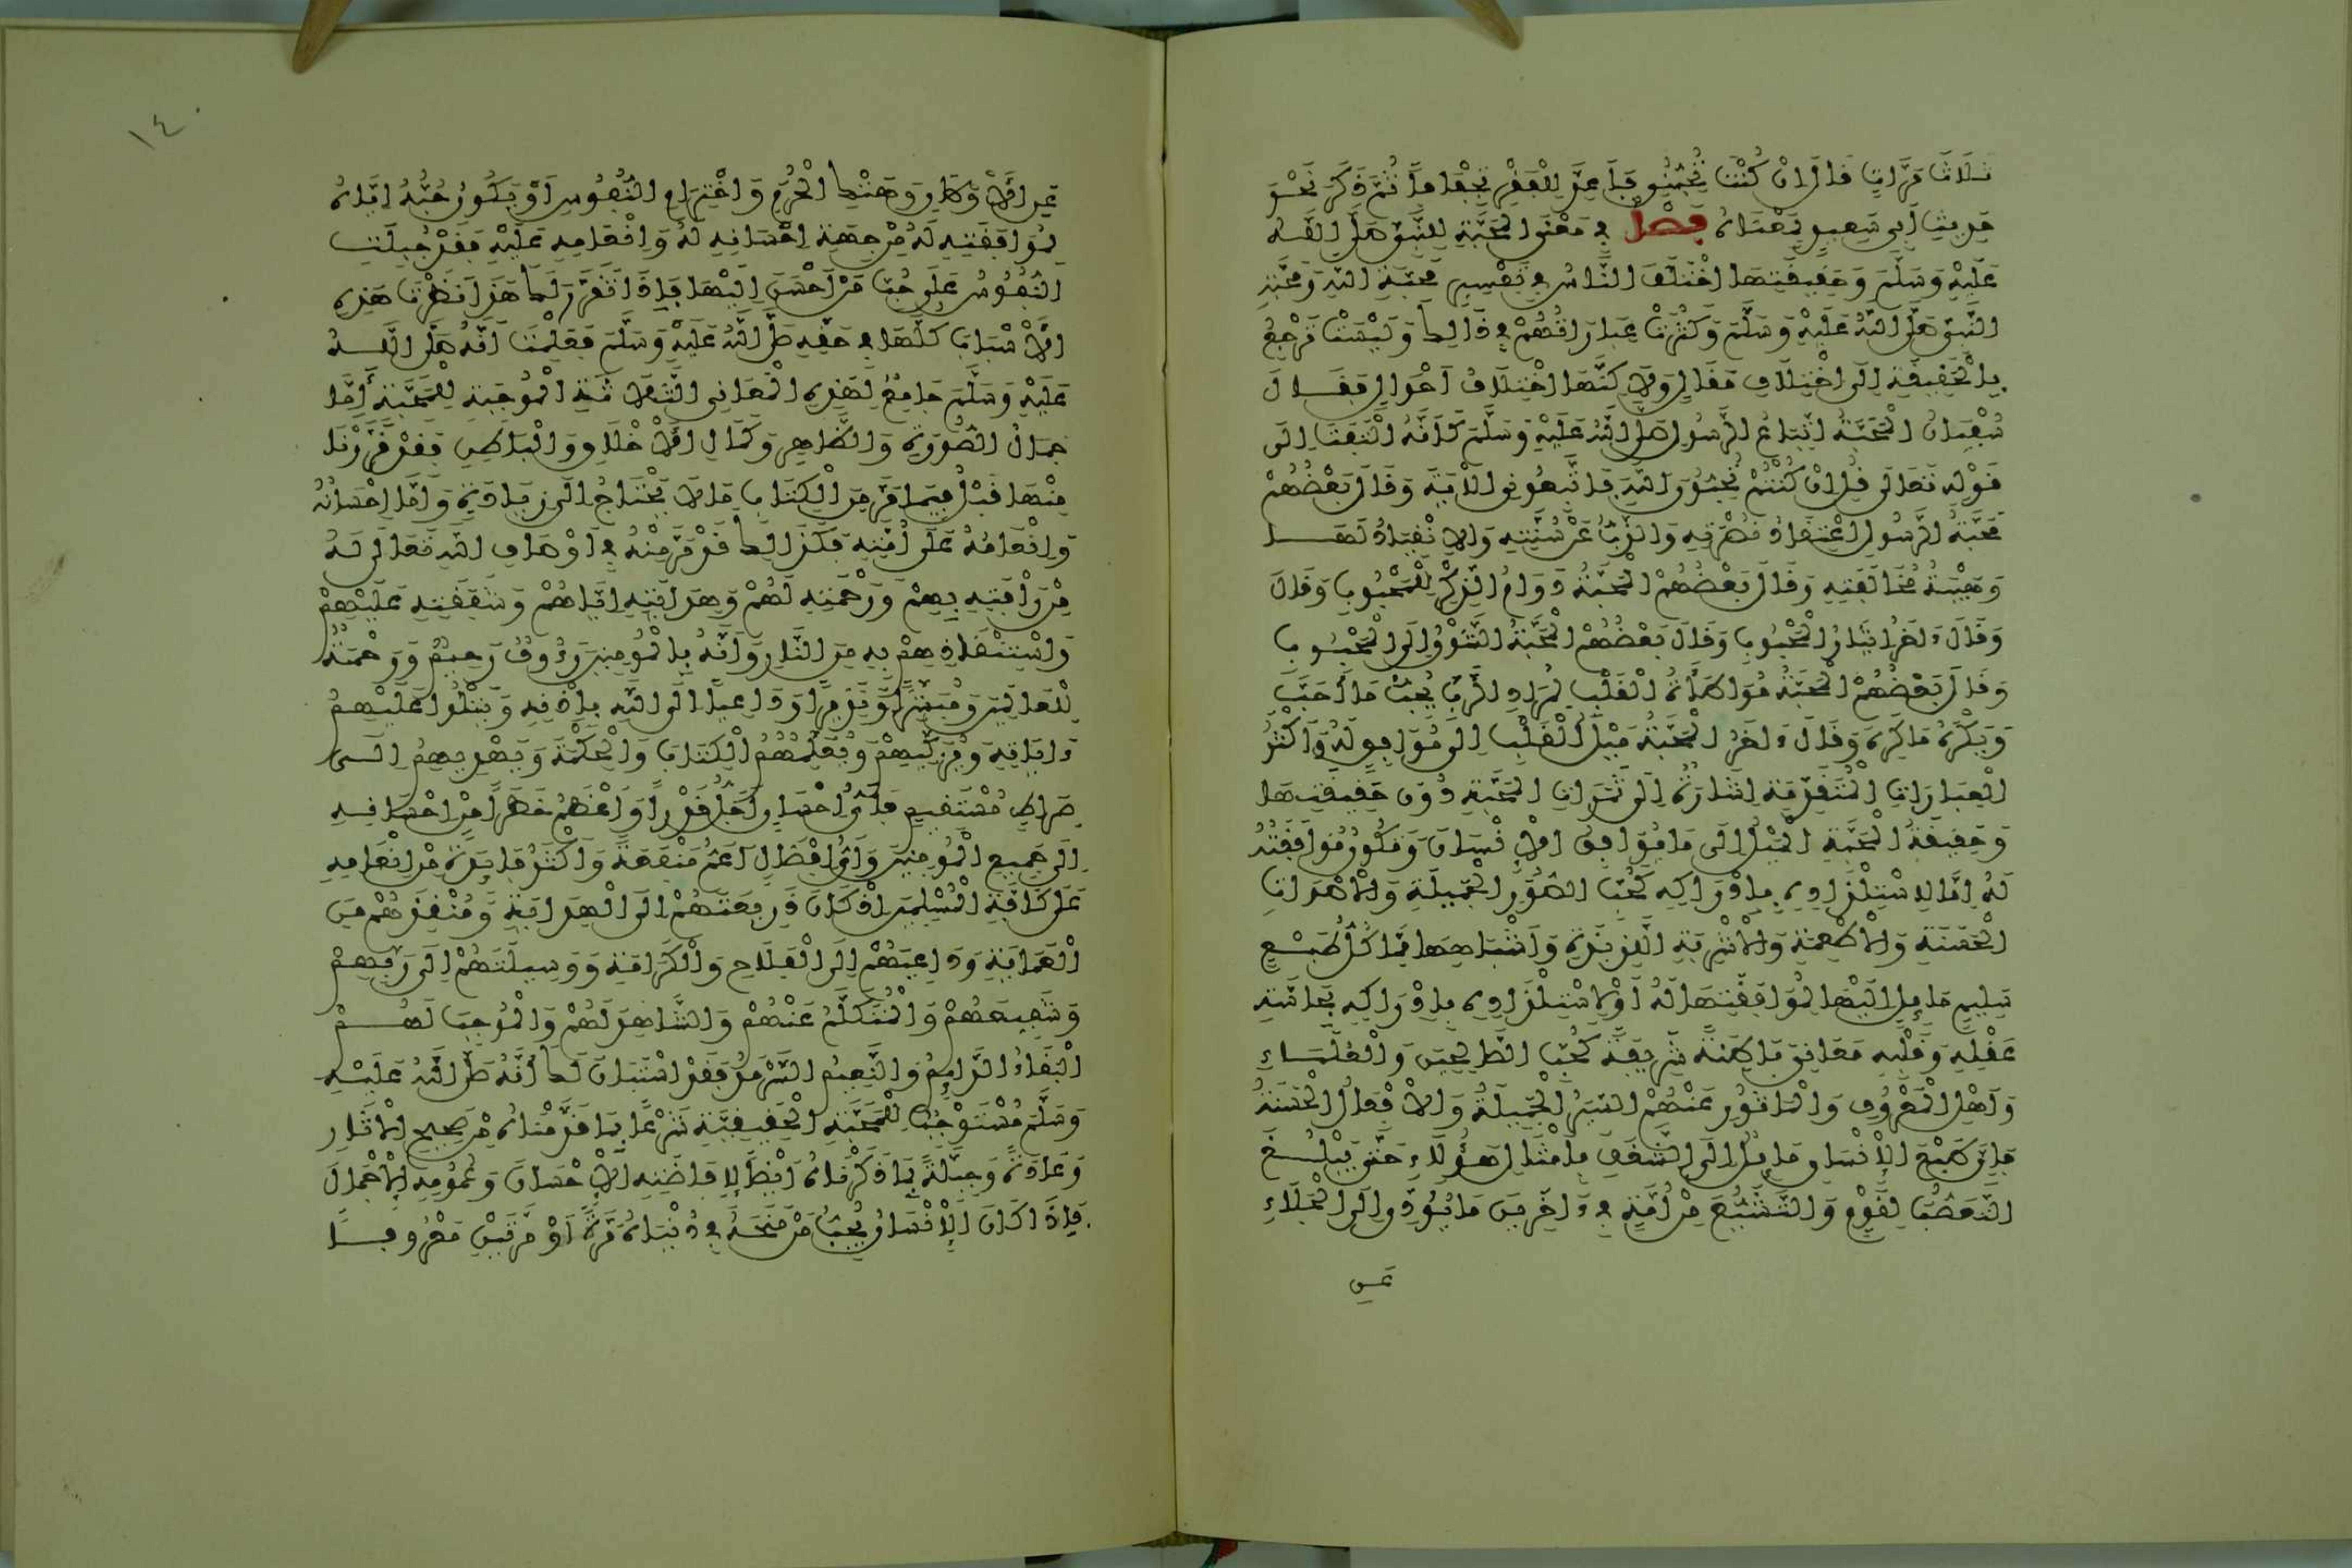 ثَلَاثَ مَرَّاتٍ قَالَ إِنْ كُنْتَ تُحِبُّنِي فَأَعِدَّ لِلْفَقْرِ تِجْفَافًا ثُمَّ ذَكَرَ نَحْوَ
حَدِيثِ أَبِي سَعِيدٍ بِمَعْنَاهُ فصل في مَعْنَى الْمَحَبَّةِ لِلنَّبِيِّ صَلَّى اللَّهُ
عَلَيْهِ وَسَلَّمَ وَحَقِيقَتِهَا اخْتَلَفَ النَّاسُ فِي تَفْسِيرِ مَحَبَّةِ اللَّهِ وَمَحَبَّةِ
النَّبِيِّ صَلَّى اللَّهُ عَلَيْهِ وَسَلَّمَ وَكَثُرَتْ عِبَارَاتُهُمْ فِي ذَالِكَ وَلَيْسَتْ تَرْجِعُ
بِالْحَقِيقَةِ إِلَى اخْتِلَافِ مَقَالٍ وَلَاكِنَّهَا اخْتِلَافُ أَحْوَالٍ فَقَالَ
سُفْيَانُ الْمَحَبَّةُ اتِّبَاعُ الرَّسُولِ صَلَّى اللَّهُ عَلَيْهِ وَسَلَّمَ كَأَنَّهُ الْتَفَتَ إِلَى
قَوْلِهِ تَعَالَى قُلْ إِنْ كُنْتُمْ تُحِبُّونَ اللَّهَ فَاتَّبِعُونِي الْآيَةَ وَقَالَ بَعْضُهُمْ
مَحَبَّةُ الرَّسُولِ اعْتِقَادُ نُصْرَتِهِ وَالذَّبُّ عَنْ سُنَّتِهِ وَالِانْقِيَادُ لَهَا
وَهَيْبَةُ مُخَالَفَتِهِ وَقَالَ بَعْضُهُمْ الْمَحَبَّةُ دَوَامُ الذِّكْرِ لِلْمَحْبُوبِ وَقَالَ
وَقَالَ ءَاخَرُ إِيثَارُ الْمَحْبُوبِ وَقَالَ بَعْضُهُمْ الْمَحَبَّةُ الشَّوْقُ إِلَى الْمَحْبُوبِ
وَقَالَ بَعْضُهُمْ الْمَحَبَّةُ مُوَاطَأَةُ الْقَلْبِ لِمُرَادِ الرَّبِّ يُحِبُّ مَا أَحَبَّ
وَيَكْرَهُ مَا كَرِهَ وَقَالَ ءَاخَرُ الْمَحَبَّةُ مَيْلُ الْقَلْبِ إِلَى مُوَافِقٍ لَهُ وَأَكْثَرُ
الْعِبَارَاتِ الْمُتَقَدِّمَةِ إِشَارَةٌ إِلَى ثَمَرَاتِ الْمَحَبَّةِ دُونَ حَقِيقَتِهَا
وَحَقِيقَةُ الْمَحَبَّةِ الْمَيْلُ إِلَى مَا يُوَافِقُ الْإِنْسَانَ وَتَكُونُ مُوَافَقَتُهُ
لَهُ إِمَّا لِاسْتِلْذَاذِهِ بِإِدْرَاكِهِ كَحُبِّ الصُّوَرِ الْجَمِيلَةِ وَالْأَصْوَاتِ
الْحَسَنَةِ وَالْأَطْعِمَةِ وَالْأَشْرِبَةِ اللَّذِيذَةِ وَأَشْبَاهِهَا مِمَّا كُلُّ طَبْعٍ
سَلِيمٍ مَائِلٌ إِلَيْهَا لِمُوَافَقَتِهَا لَهُ أَوْ لِاسْتِلْذَاذِهِ بِإِدْرَاكِهِ بِحَاسَّةِ
عَقْلِهِ وَقَلْبِهِ مَعَانِيَ بَاطِنَةً شَرِيفَةً كَحُبِّ الصَّالِحِينَ وَالْعُلَمَاءِ
وَأَهْلِ الْمَعْرُوفِ وَالْمَأْثُورِ عَنْهُمْ السِّيَرُ الْجَمِيلَةُ وَالْأَفْعَالُ الْحَسَنَةُ
فَإِنَّ طَبْعَ الْإِنْسَانِ مَائِلٌ إِلَى الشَّغَفِ بِأَمْثَالِ هَؤُلَاءِ حَتَّى يَبْلُغَ
التَّعَصُّبَ لِقَوْمٍ وَالتَّشَيُّعَ مِنْ أُمَّةٍ فِي ءَاخَرِينَ مَا يُؤَدِّي إِلَى الْجَلَاءِ
عن
١٤
عَنِ الْأَوْطَانِ وَهَتْكِ الْحُرَمِ وَاخْتِرَامِ النُّفُوسِ أَوْ يَكُونُ حُبُّهُ إِيَّاهُ
لِمُوَافَقَتِهِ لَهُ مِنْ جِهَةِ إِحْسَانِهِ لَهُ وَإِنْعَامِهِ عَلَيْهِ فَقَدْ جُبِلَتِ
النُّفُوسُ عَلَى حُبِّ مَنْ أَحْسَنَ إِلَيْهَا فَإِذَا تَقَرَّرَ لَكَ هَذَا نَظَرْتَ هَذِهِ
الْأَسْبَابَ كُلَّهَا فِي حَقِّهِ صَلَّى اللَّهُ عَلَيْهِ وَسَلَّمَ فَعَلِمْتَ أَنَّهُ صَلَّى اللَّهُ
عَلَيْهِ وَسَلَّمَ جَامِعٌ لِهَذِهِ الْمَعَانِي الثَّلَاثَةِ الْمُوجِبَةِ لِلْمَحَبَّةِ أَمَّا
جَمَالُ الصُّورَةِ وَالظَّاهِرِ وَكَمَالِ الْأَخْلَاقِ وَالْبَاطِنِ فَقَدْ قَرَّرْنَا
مِنْهَا قَبْلُ فِيمَا مَرَّ مِنَ الْكِتَابِ مَا لَا يَحْتَاجُ إِلَى زِيَادَةٍ وَأَمَّا إِحْسَانُهُ
وَإِنْعَامُهُ عَلَى أُمَّتِهِ فَكَذَالِكَ قَدْ مَرَّ مِنْهُ فِي أَوْصَافِ اللَّهِ تَعَالَى لَهُ
مِنْ رَأْفَتِهِ بِهِمْ وَرَحْمَتِهِ لَهُمْ وَهِدَايَتِهِ إِيَّاهُمْ وَشَفَقَتِهِ عَلَيْهِمْ
وَاسْتِنْقَاذِهِمْ بِهِ مِنَ النَّارِ وَأَنَّهُ بِالْمُومِنِينَ رَءُوفٌ رَحِيمٌ وَرَحْمَةٌ
لِلْعَالَمِينَ وَمُبَشِّرًا وَنَذِيرًا وَدَاعِيًا إِلَى اللَّهِ بِإِذْنِهِ وَيَتْلُوا عَلَيْهِمُ
ءَايَاتِهِ وَيُزَكِّيهِمْ وَيُعَلِّمُهُمُ الْكِتَابَ وَالْحِكْمَةَ وَيَهْدِيهِمُ إِلَى
صِرَاطٍ مُسْتَقِيمٍ فَأَيُّ إِحْسَانٍ أَجَلُّ قَدْرًا وَأَعْظَمُ خَطَرًا مِنْ إِحْسَانِهِ
إِلَى جَمِيعِ الْمُومِنِينَ وَأَيُّ إِفْضَالٍ أَعَمُّ مَنْفَعَةً وَأَكْثَرُ فَائِدَةً مِنْ إِنْعَامِهِ
عَلَى كَافَّةِ الْمُسْلِمِينَ إِذْ كَانَ ذَرِيعَتَهُمْ إِلَى الْهِدَايَةِ وَمُنْقِذَهُمْ مِنَ
الْعَمَايَةِ وَدَاعِيَهُمْ إِلَى الْفَلَاحِ وَالْكَرَامَةِ وَوَسِيلَتَهُمْ إِلَى رَبِّهِمْ
وَشَفِيعَهُمْ وَالْمُتَكَلِّمَ عَنْهُمْ وَالشَّاهِدَ لَهُمْ وَالْمُوجِبَ لَهُمْ
الْبَقَاءَ الدَّائِمَ وَالنَّعِيمَ السَّرْمَدَ فَقَدْ اسْتَبَانَ لَكَ أَنَّهُ صَلَّى اللَّهُ عَلَيْهِ
وَسَلَّمَ مُسْتَوْجِبٌ لِلْمَحَبَّةِ الْحَقِيقِيَّةِ شَرْعًا بِمَا قَدَّمْنَاهُ مِنْ صَحِيحِ الْآثَارِ
وَعَادَةً وَجِبِلَّةً بِمَا ذَكَرْنَاهُ أَيْضًا لِإِفَاضَتِهِ الْإِحْسَانَ وَعُمُومِهِ الْإِجْمَالَ
فَإِذَا كَانَ الْإِنْسَانُ يُحِبُّ مَنْ مَنَحَهُ فِي دُنْيَاهُ مَرَّةً أَوْ مَرَّتَيْنِ مَعْرُوفًا